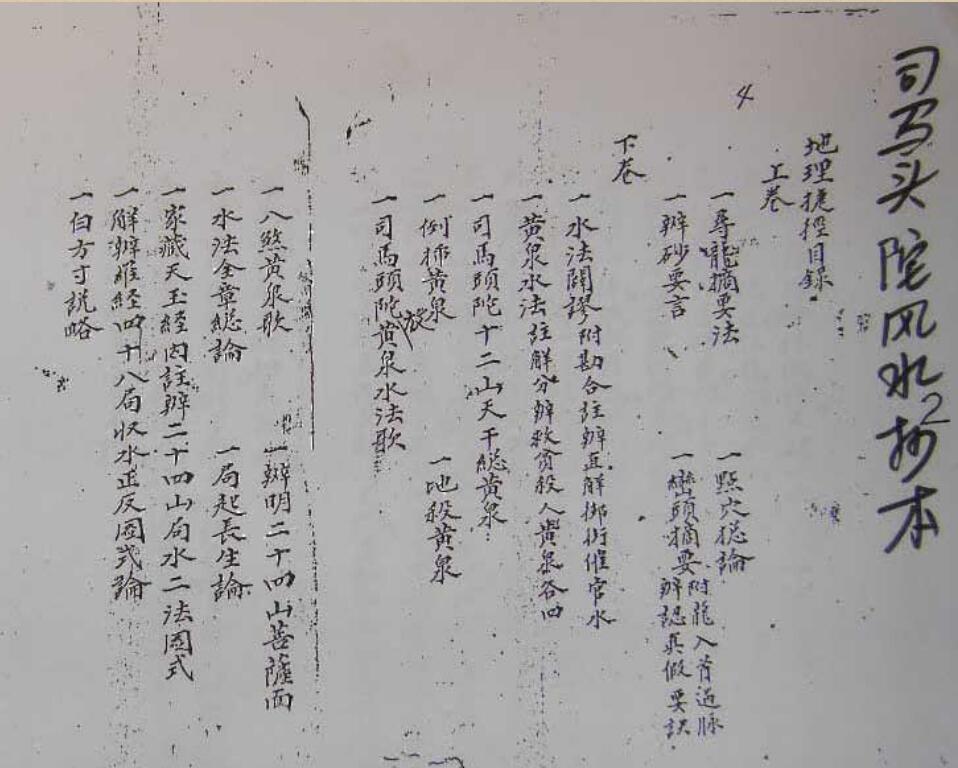 司马头陀风水抄本
2
地理捷徑目錄
上卷
4
一尋龍摘要法 一點穴摠論
一辨砂要言 一巒頭摘要 附龍入首過脉 辨認真假要訣
下卷
一水法闢謬附勘合註辦直解掷衔催官水
一黄泉水法註解分辦救貧殺人黄泉各四
一司馬頭陀十二山天干總黄泉
一例掃黄泉 一地殺黄泉
一司馬頭陀黄泉水法歌
放
一八煞黄泉歌 一辨明二十四山菩薩面
一水法全章總論 一局起長生論
一家藏天玉經内註辦二十四山局水二法圖式
一解辦維経四十八局收水正反圖式論
一白方寸説略